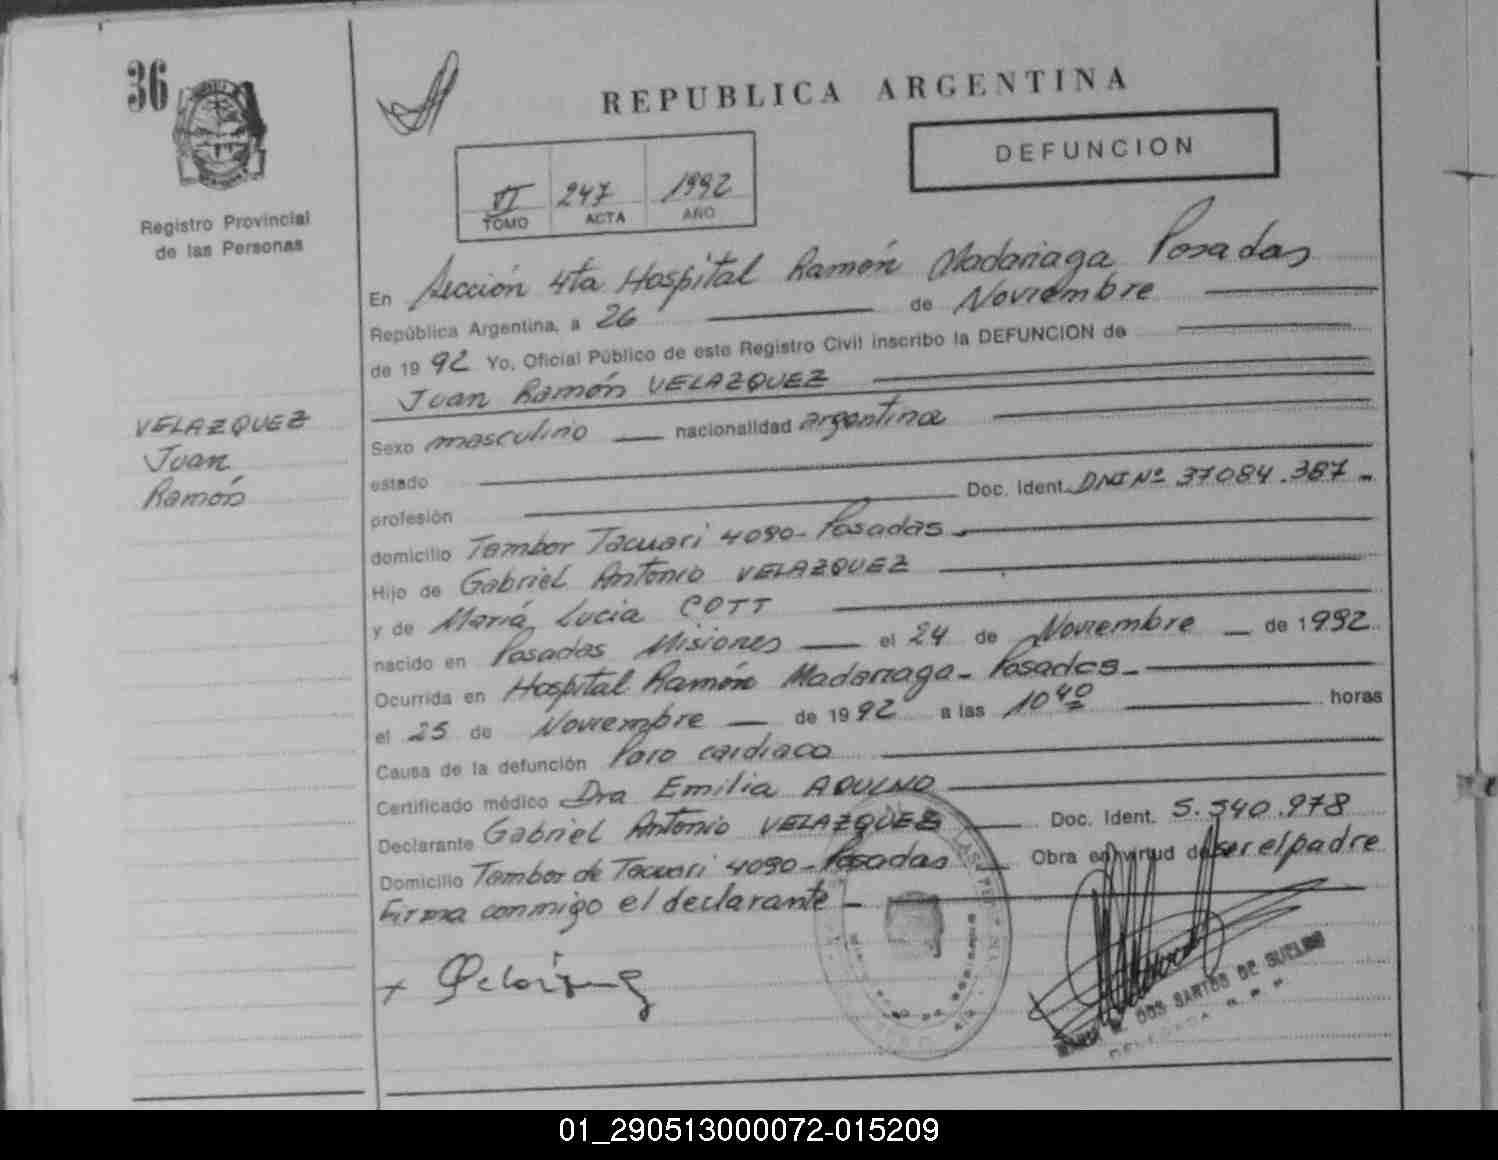 36
REPUBLICA ARGENTINA
DEFUNCION
VI 247 1992
TOMO ACTA AÑO
Registro Provincial
de las Personas
En Sección 4ta Hospital Ramón Madariaga Posadas
República Argentina, a 26 de Noviembre
de 1992 Yo, Oficial Público de este Registro Civil inscribo la DEFUNCION de
Juan Ramón VELAZQUEZ
VELAZQUEZ
Juan
Ramón
Sexo masculino nacionalidad argentina
estado
profesión Doc. Ident. DNI Nº 37084.387
domicilio Tambor Tacuari 4090- Posadas
Hijo de Gabriel Antonio VELAZQUEZ
y de María Lucia COTT
nacido en Posadas Misiones el 24 de Noviembre de 1992
Ocurrida en Hospital Ramón Madariaga- Posadas-
el 25 de Noviembre de 1992 a las 10 40 horas
Causa de la defunción Paro cardiaco
Certificado médico Dra Emilia
Declarante Gabriel Antonio VELAZQUEZ Doc. Ident. 5.540.978
Domicilio Tambor de Tacuari 4090- Posadas Obra en virtud de ser el padre
Firma conmigo el declarante
DOS SANTOS DE
01_290513000072-015209